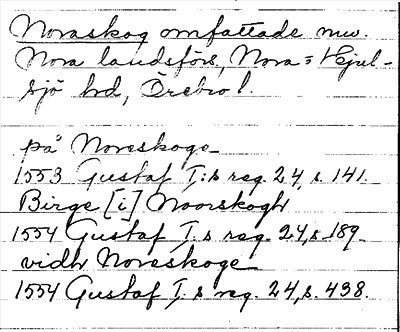 Noraskog omfattade nuv.
Nora landsförs, Nora = Hjul-
sjö hd, Örebro l.
på Noreskoge
1553 Gustaf I:s reg. 24, s. 141.
Birge [i] Noorskogh
1554 Gustaf I:s reg. 24, s. 189.
vidh Noreskoge
1554 Gustaf I:s reg. 24, s. 498.